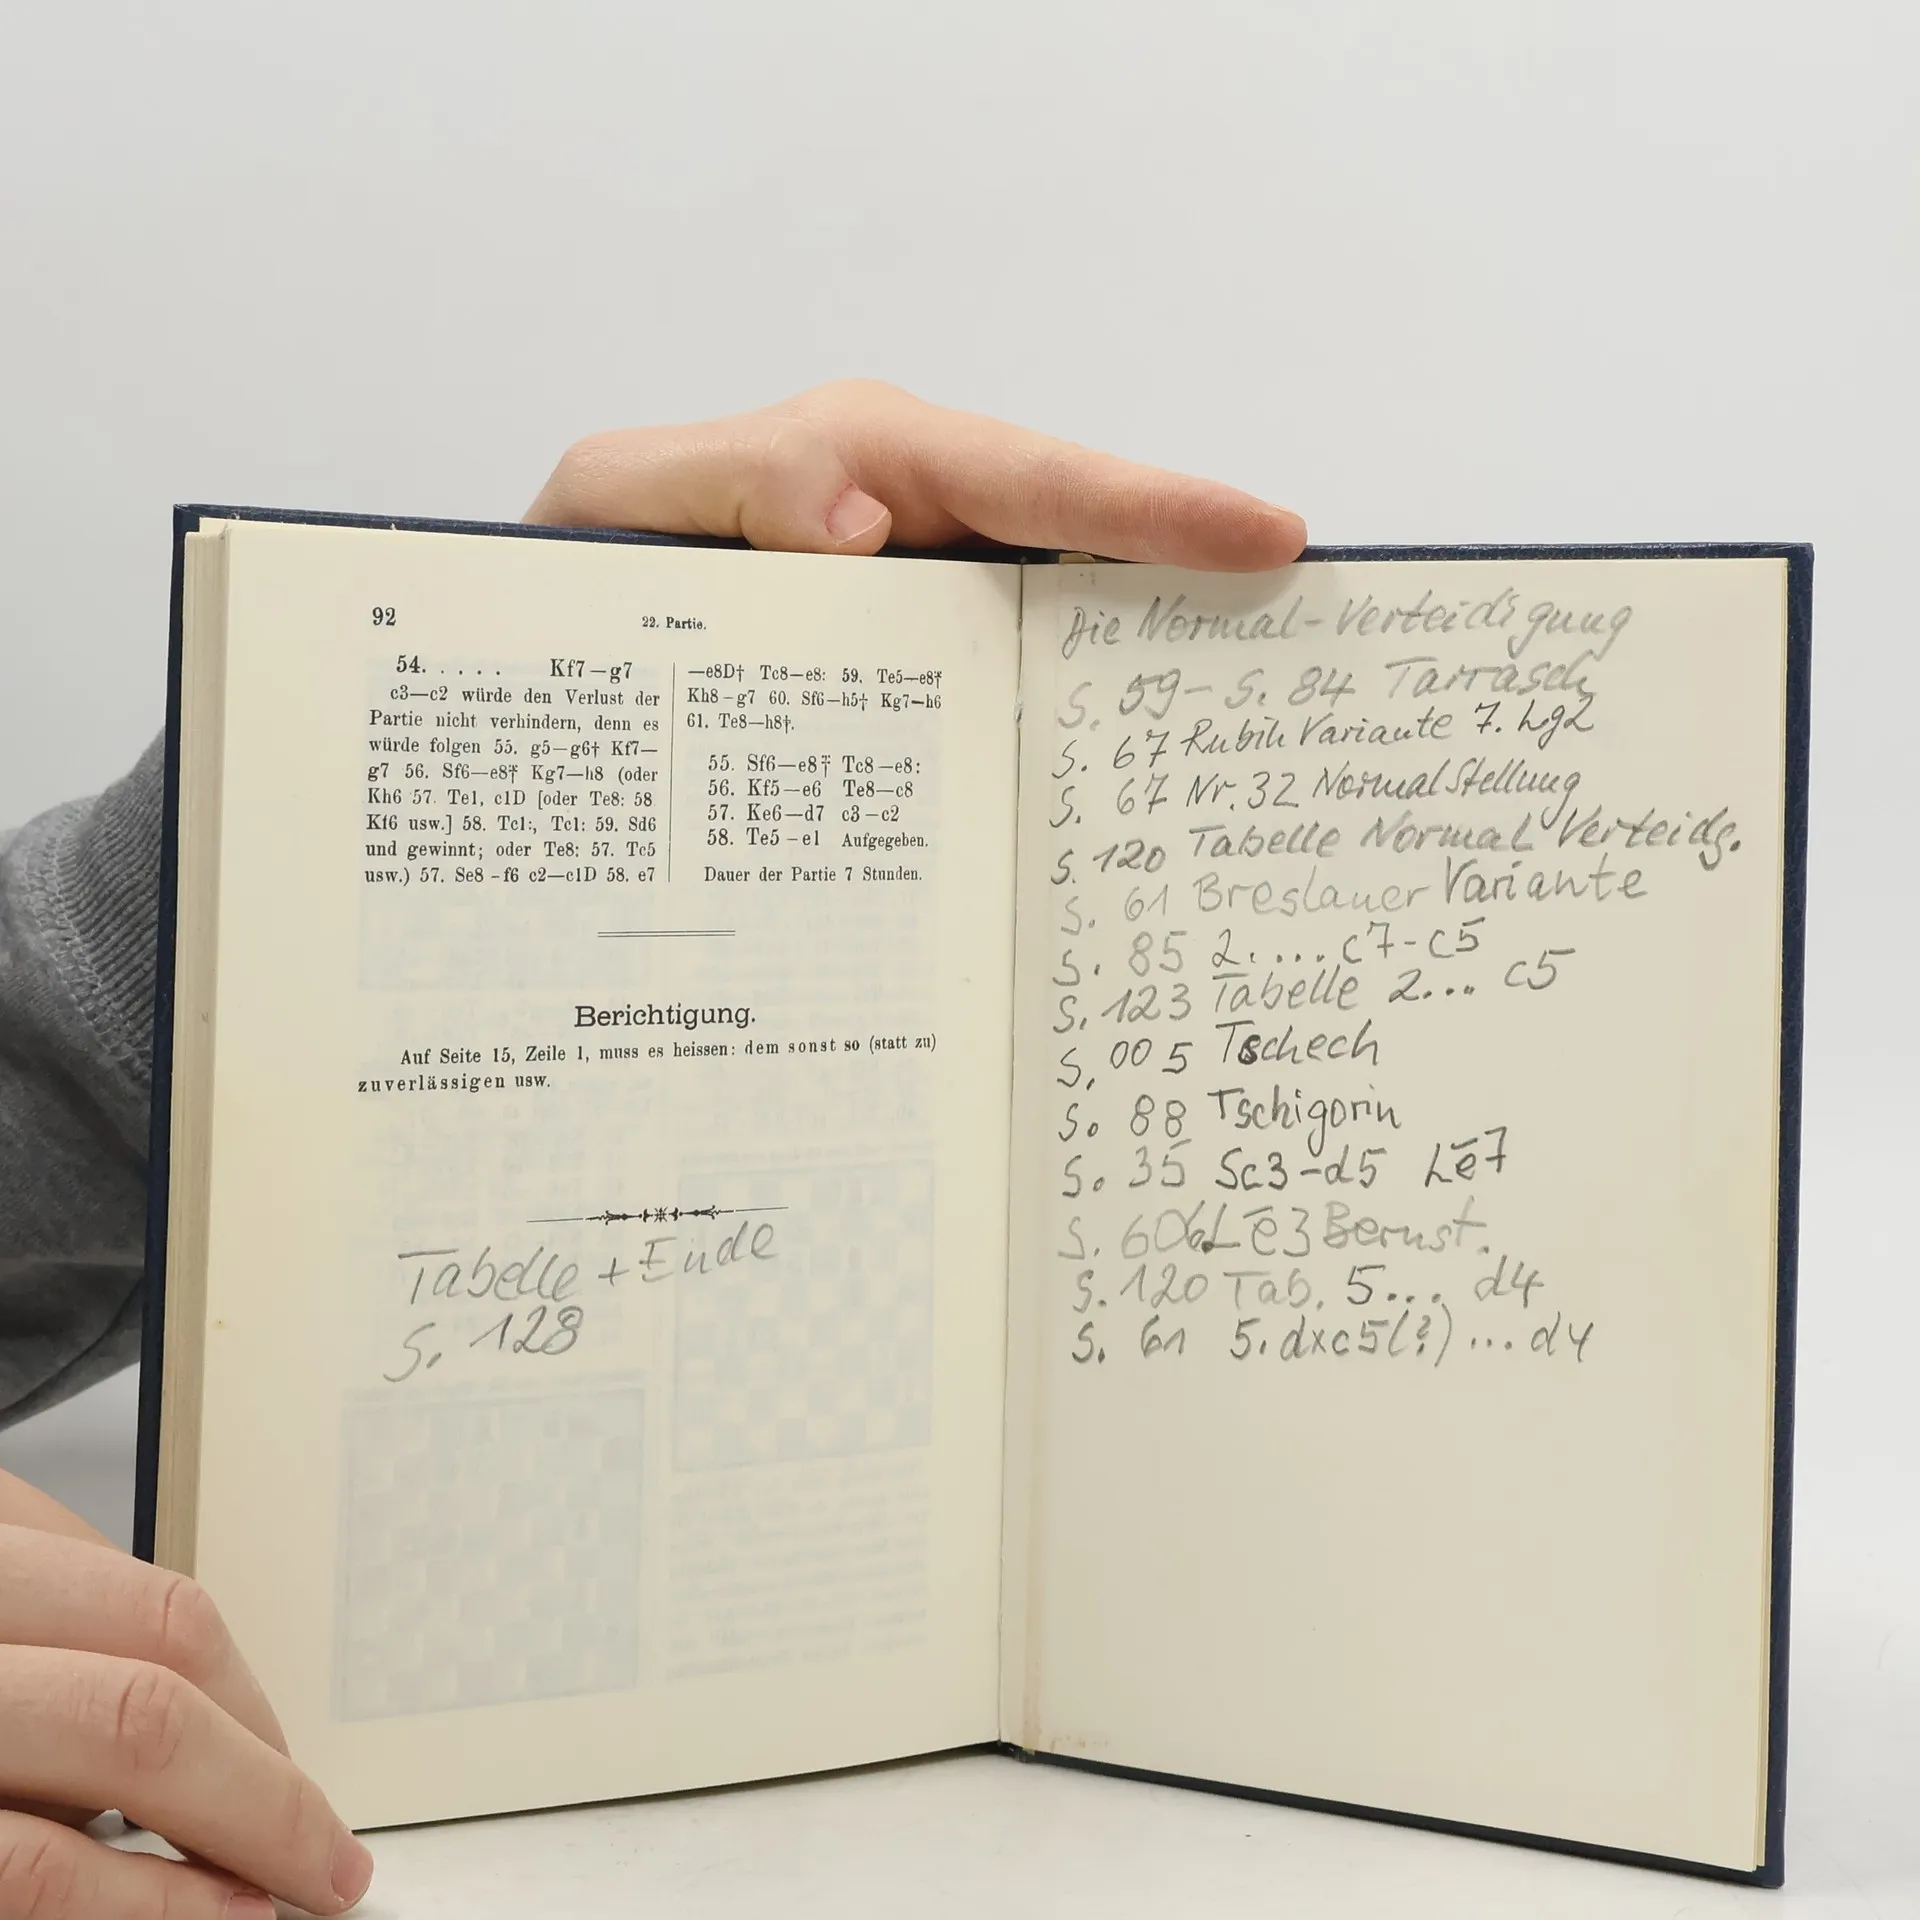 92
22. Partie.
54. . . . . . Kf7—g7
c3—c2 würde den Verlust der
Partie nicht verhindern, denn es
würde folgen 55. g5—g6† Kf7—
g7 56. Sf6—e8‡ Kg7—h8 (oder
Kh6 57. Te1, c1D [oder Te8: 58
Kf6 usw.] 58. Tc1:, Tc1: 59. Sd6
und gewinnt; oder Te8: 57. Tc5
usw.) 57. Se8—f6 c2—c1D 58. e7
—e8D† Tc8—e8: 59. Te5—e8‡
Kh8—g7 60. Sf6—h5† Kg7—h6
61. Te8—h8†.
55. Sf6—e8‡ Tc8—e8:
56. Kf5—e6 Te8—c8
57. Ke6—d7 c3—c2
58. Te5—e1 Aufgegeben.
Dauer der Partie 7 Stunden.
Berichtigung.
Auf Seite 15, Zeile 1, muss es heissen: dem sonst so (statt zu)
zuverlässigen usw.
Tabelle + Ende
S. 128
Die Normal-Verteidigung
S. 59 - S. 84 Tarrasch
S. 67 Rubin Variante 7. Lg2
S. 67 Nr. 32 Normal Stellung
S. 120 Tabelle Normal Verteidg.
S. 61 Breslauer Variante
S. 85 2. .... c7-c5
S. 123 Tabelle 2... c5
S. 005 Tschech
S. 88 Tschigorin
S. 35 Sc3-d5 Le7
S. Le3 Bernst.
S. 120 Tab. 5... d4
S. 61 5. dxc5(?) ... d4